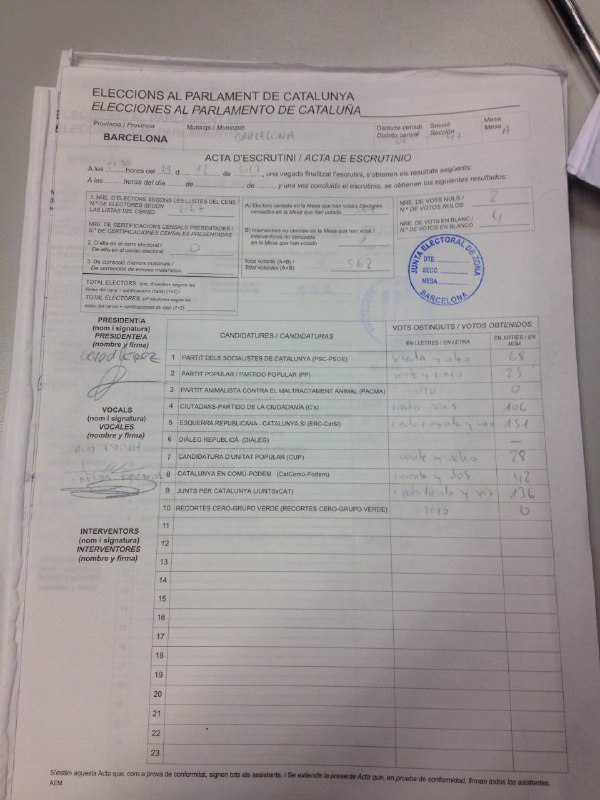 ELECCIONS AL PARLAMENT DE CATALUNYA
ELECCIONES AL PARLAMENTO DE CATALUÑA
Província / Provincia
BARCELONA
Municipi / Municipio
BARCELONA
Districte censal
Distrito censal
Secció
Sección
Mesa
Mesa A
ACTA D'ESCRUTINI / ACTA DE ESCRUTINIO
A les hores del de de una vegada finalitzat l'escrutini, s'obtenen els resultats següents:
A las horas del día de de y una vez concluido el escrutinio, se obtienen los siguientes resultados:
1. NRE. D'ELECTORS SEGONS LES LLISTES DEL CENS /
N.º DE ELECTORES SEGÚN
LAS LISTAS DEL CENSO
NRE. DE CERTIFICACIONS CENSALS PRESENTADES /
N.º DE CERTIFICACIONES CENSALES PRESENTADAS
2. D'alta en el cens electoral /
De alta en el censo electoral 0
3. De correcció d'errors materials /
De corrección de errores materiales
TOTAL ELECTORS
TOTAL ELECTORES
A) Electors censats en la Mesa que han votat / Electores
censados en la Mesa que han votado
B) Interventors no censats en la Mesa que han votat /
Interventores no censados
en la Mesa que han votado 1
Total votants (A+B) /
Total votantes (A+B) 562
NRE. DE VOTS NULS /
N.º DE VOTOS NULOS 2
NRE. DE VOTS EN BLANC /
N.º DE VOTOS EN BLANCO 4
JUNTA ELECTORAL DE ZONA
DTE.
SECC.
MESA
BARCELONA
PRESIDENT/A
(nom i signatura)
PRESIDENTE/A
(nombre y firma)
VOCALS
(nom i signatura)
VOCALES
(nombre y firma)
INTERVENTORS
(nom i signatura)
INTERVENTORES
(nombre y firma)
CANDIDATURES / CANDIDATURAS
VOTS OBTINGUTS / VOTOS OBTENIDOS
EN LLETRES / EN LETRA
EN XIFRES / EN NÚM.
1 PARTIT DELS SOCIALISTES DE CATALUNYA (PSC-PSOE) sesenta y ocho 68
2 PARTIT POPULAR / PARTIDO POPULAR (PP) veinte y cinco 25
3 PARTIT ANIMALISTA CONTRA EL MALTRACTAMENT ANIMAL (PACMA) cero 0
4 CIUTADANS-PARTIDO DE LA CIUDADANÍA (C's) ciento seis 106
5 ESQUERRA REPUBLICANA - CATALUNYA SÍ (ERC-CatSí) ciento cincuenta y uno 151
6 DIÀLEG REPUBLICÀ (DIÀLEG) —
7 CANDIDATURA D'UNITAT POPULAR (CUP) veinte y ocho 28
8 CATALUNYA EN COMÚ-PODEM (CatComú-Podem) cuarenta y dos 42
9 JUNTS PER CATALUNYA (JUNTSxCAT) ciento treinta y seis 136
10 RECORTES CERO-GRUPO VERDE (RECORTES CERO-GRUPO VERDE) cero 0
11
12
13
14
15
16
17
18
19
20
21
22
23
S'estén aquesta Acta que, com a prova de conformitat, signen tots els assistents. / Se extiende la presente Acta que, en prueba de conformidad, firman todos los asistentes.
AEM